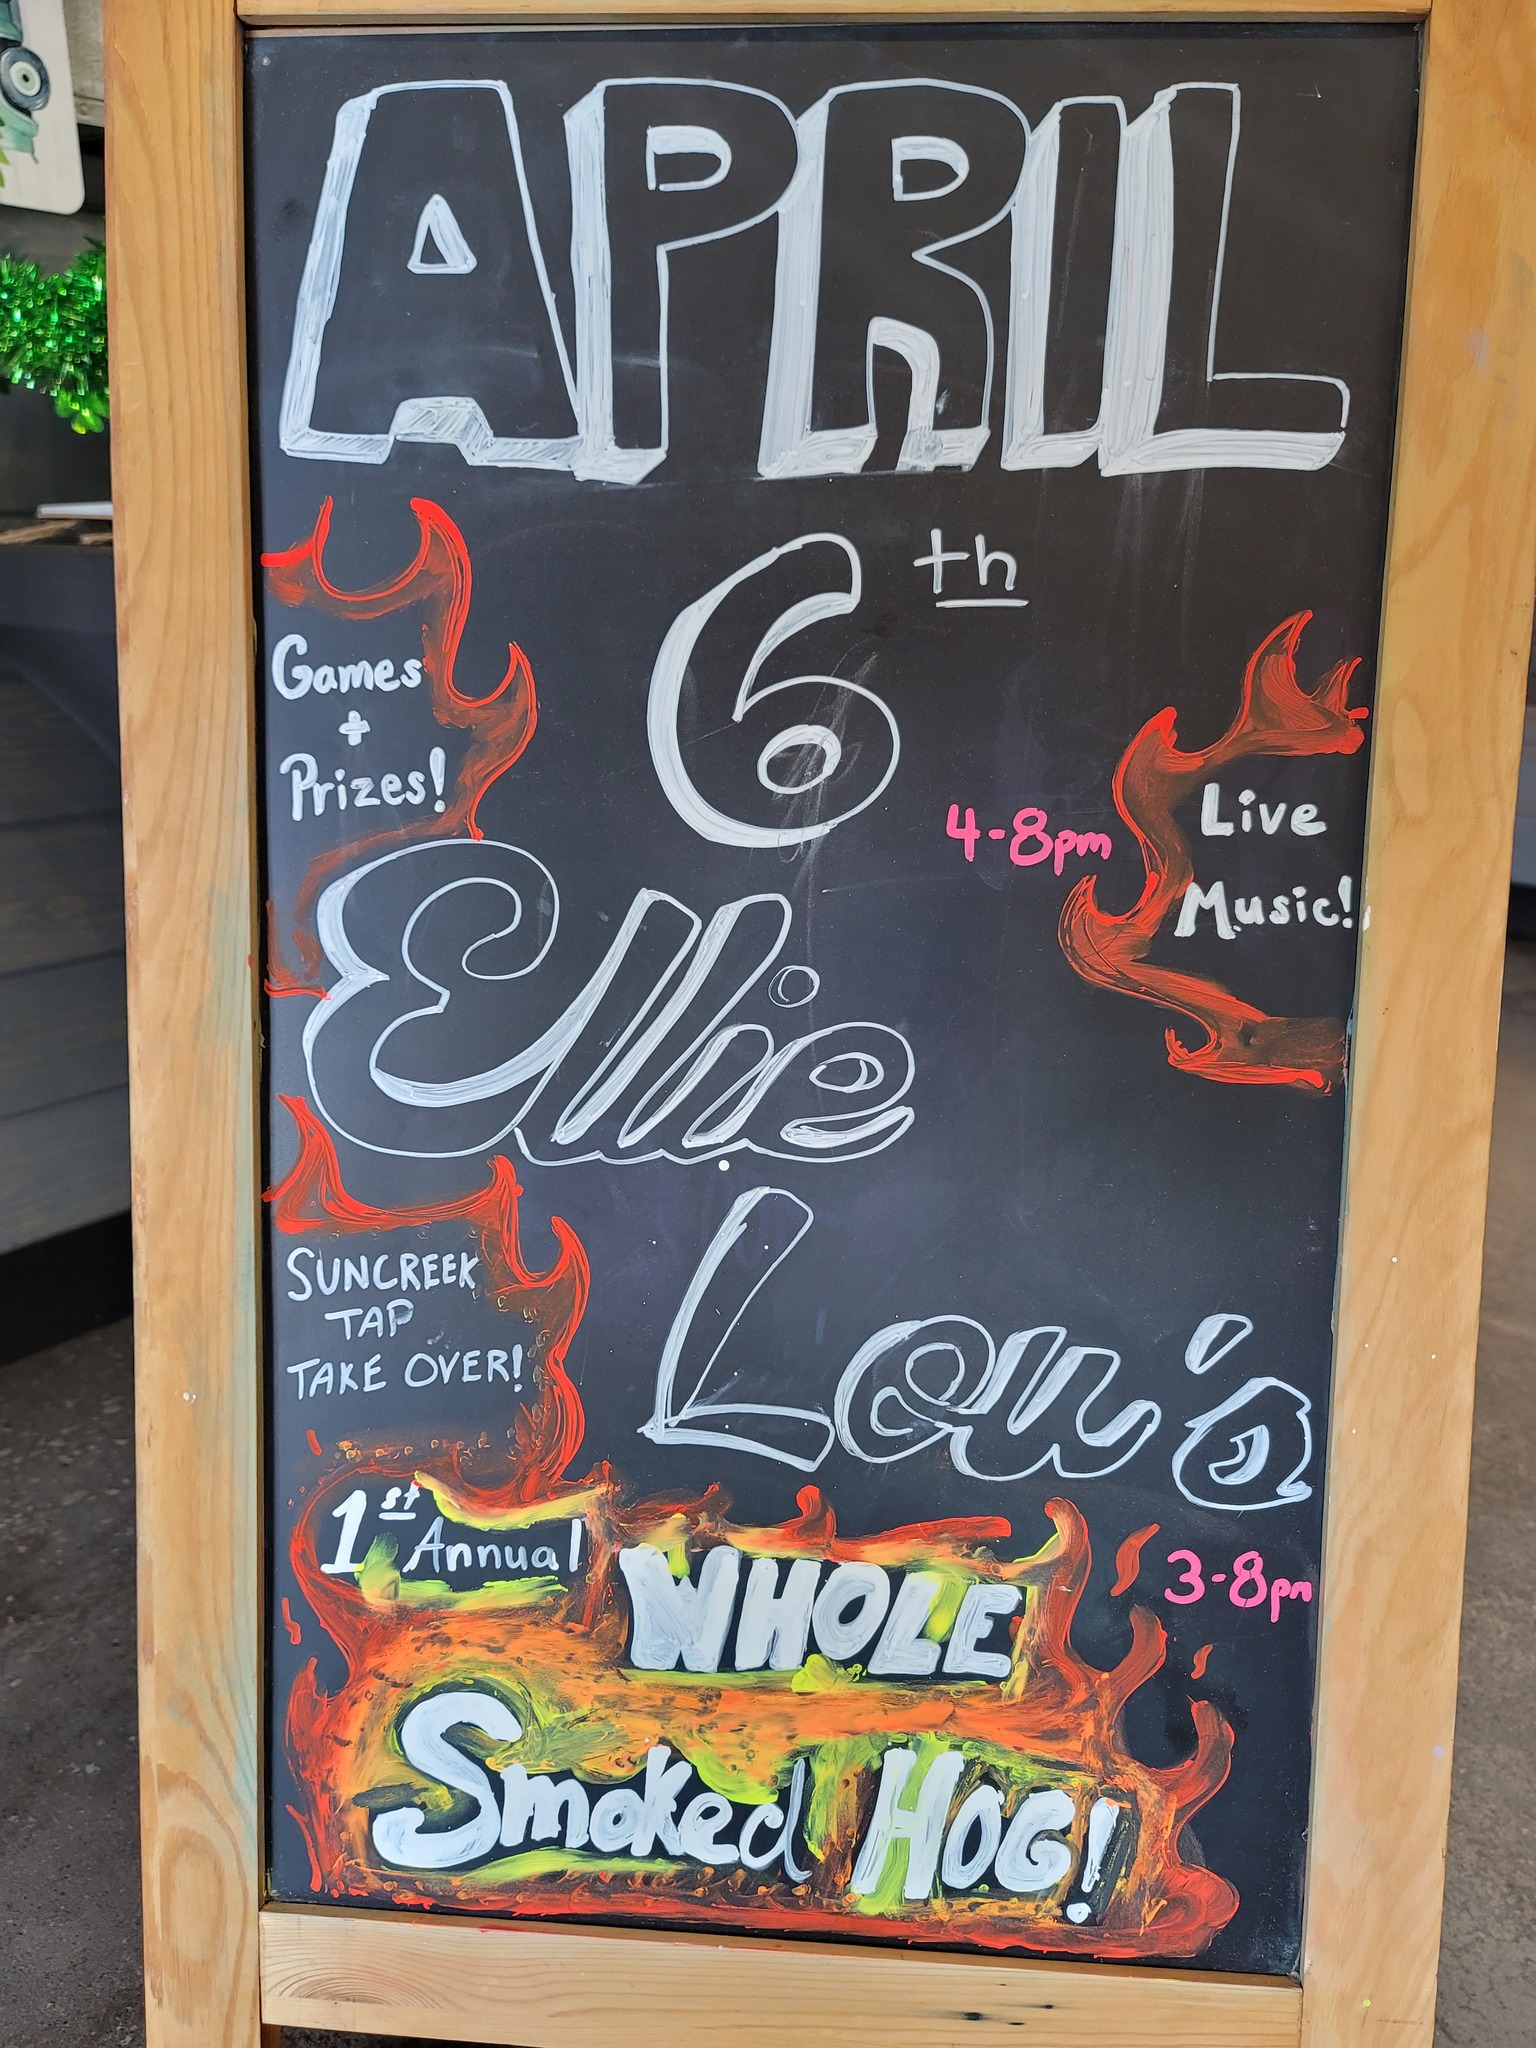 APRIL
6th
Games
+
Prizes!
4-8pm
Live
Music!
Ellie
Lou's
SUNCREEK
TAP
TAKE OVER!
1st Annual
WHOLE
3-8pm
Smoked HOG!